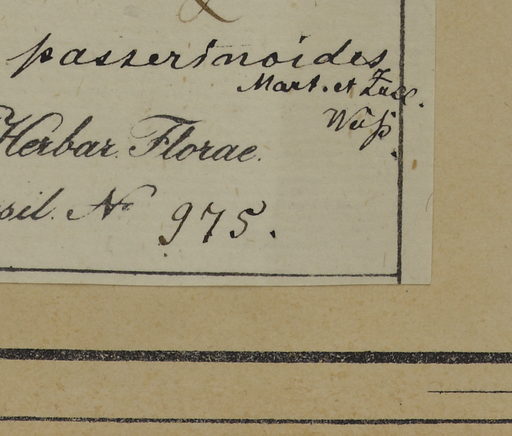 passerinoides
Mart. et Zucc.
Herbar. Florae
sil. N 975.